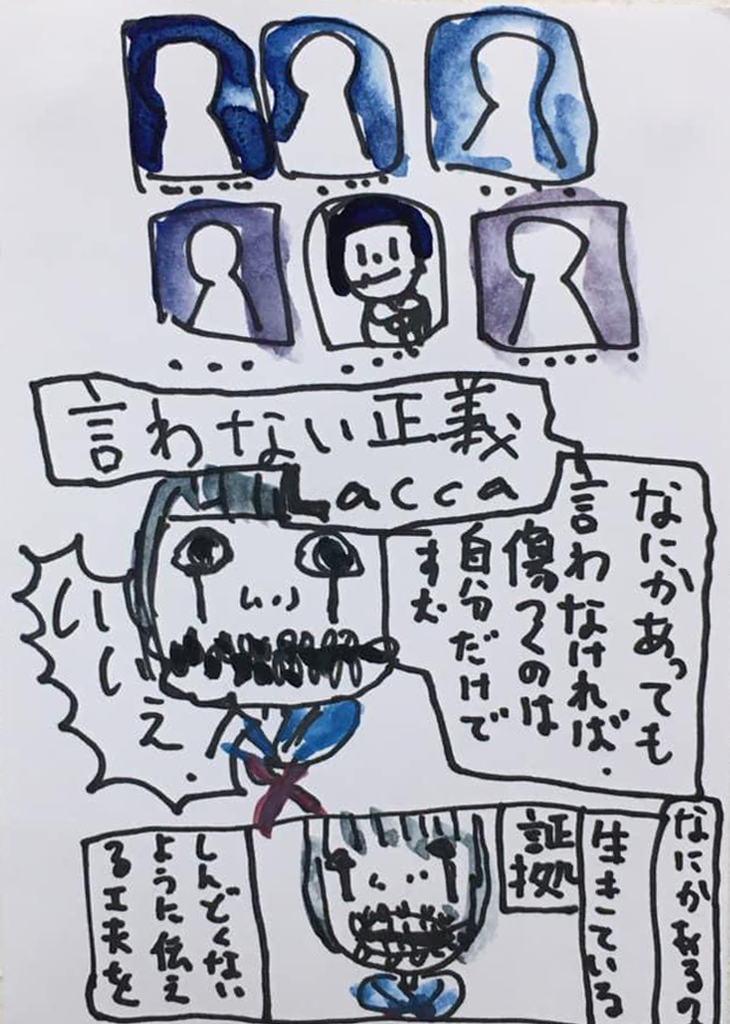 言わない正義
Lacca
なにかあっても
言わなければ、
傷つくのは
自分だけで
すむ
いいえ。
なにかあるの
生きている
証拠
しんどくない
ように伝え
る工夫を